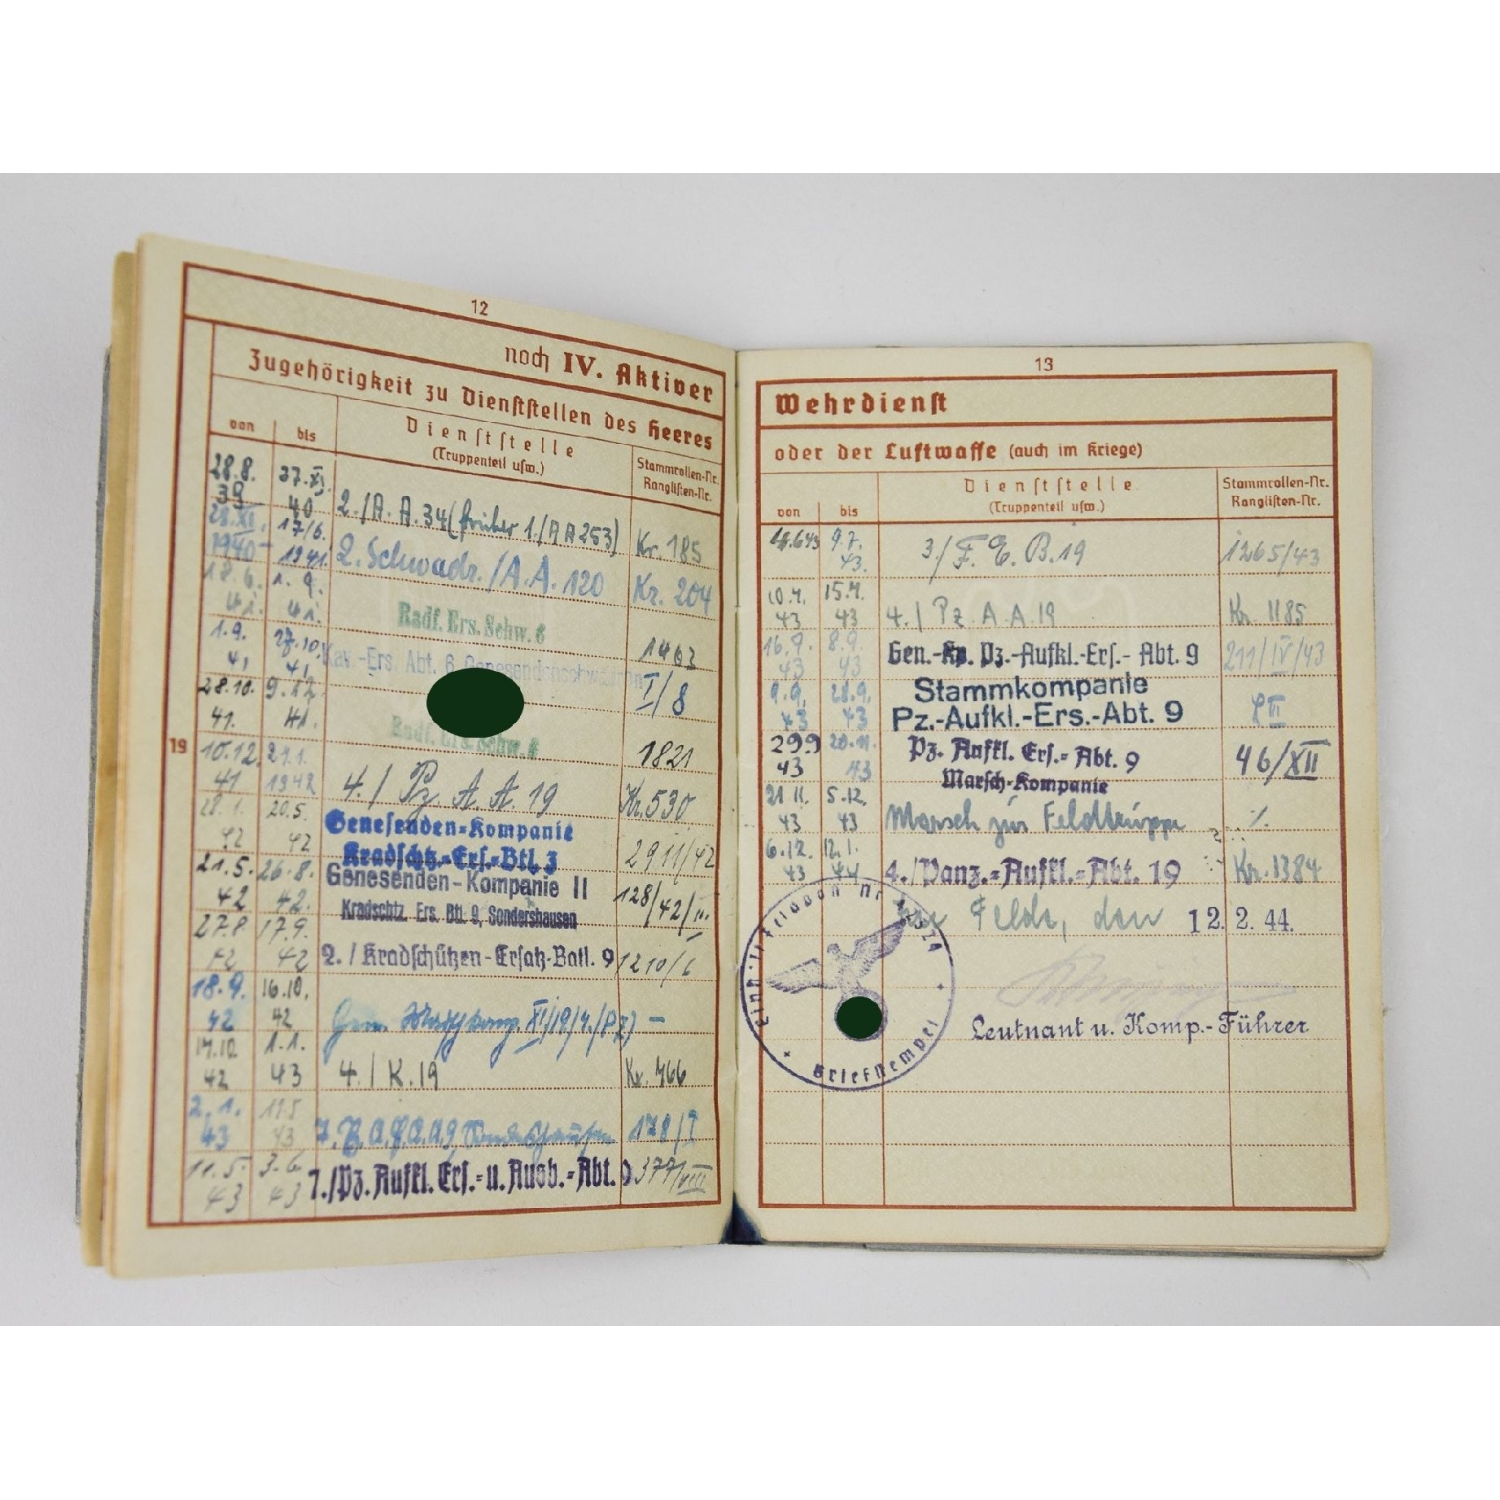 12
noch IV. Aktiver
Zugehörigkeit zu Dienststellen des Heeres
von bis Dienststelle (Truppenteil usw.) Stammrollen-Nr. Ranglisten-Nr.
28.8. 39 27.XI. 40 2./A.A.34 (früher 1./AA253) Kr. 185
28.XI. 1940 17/6. 1941 2. Schwadr./A.A.120 Kr. 204
18.6. 41. 1.9. 41. Radf. Ers. Schw. 6 1463
1.9. 41 27.10. 41 Kav.-Ers. Abt. 6 Genesendenschwadron I/8
28.10. 41. 9.12. 41. Radf. Ers. Schw. 6 1821
19
10.12. 41 27.1. 1942 4./Pz.A.A.19 Kr. 530
28.1. 42 20.5. 42 Genesenden-Kompanie
Kradschtz.-Ers.-Btl. 3 2911/42
21.5. 42 26.8. 42. Genesenden-Kompanie II
Kradschtz. Ers. Btl. 9, Sondershausen 128/42/II.
27.8. 42 17.9. 42 2./Kradschützen-Ersatz-Batl. 9 1210/I
18.9. 42 16.10. 42 Gen. XI/19/4./Pz) –
17.10. 42 1.1. 43 4./K.19 Kr. 466
2.1. 43 43 7. Sondershausen 178/I
11.5. 43 3.6. 43 7./Pz. Aufkl. Ers.- u. Ausb.-Abt. 9 377/VIII
13
Wehrdienst
oder der Luftwaffe (auch im Kriege)
von bis Dienststelle (Truppenteil usw.) Stammrollen-Nr. Ranglisten-Nr.
4.6.43 9.7. 43. 3./F.E.B.19 1265/43
10.7. 43 15.7. 43 4./Pz.A.A.19 Kr. 1185
16.7. 43 8.9. 43 Gen.-Kp. Pz.-Aufkl.-Ers.- Abt. 9 211/IV/43
9.9. 43 28.9. 43 Stammkompanie
Pz.-Aufkl.-Ers.-Abt. 9
29.9 43 20.11. 43 Pz. Aufkl. Ers.- Abt. 9
Marsch-Kompanie 46/XII
21.11. 43 5.12. 43 Marsch zur Feldtruppe ./.
6.12. 43 12.1. 44 4./Panz.-Aufkl.-Abt. 19 Kr. 1384
Im Felde, den 12. 2. 44.
Leutnant u. Komp.-Führer
Briefstempel